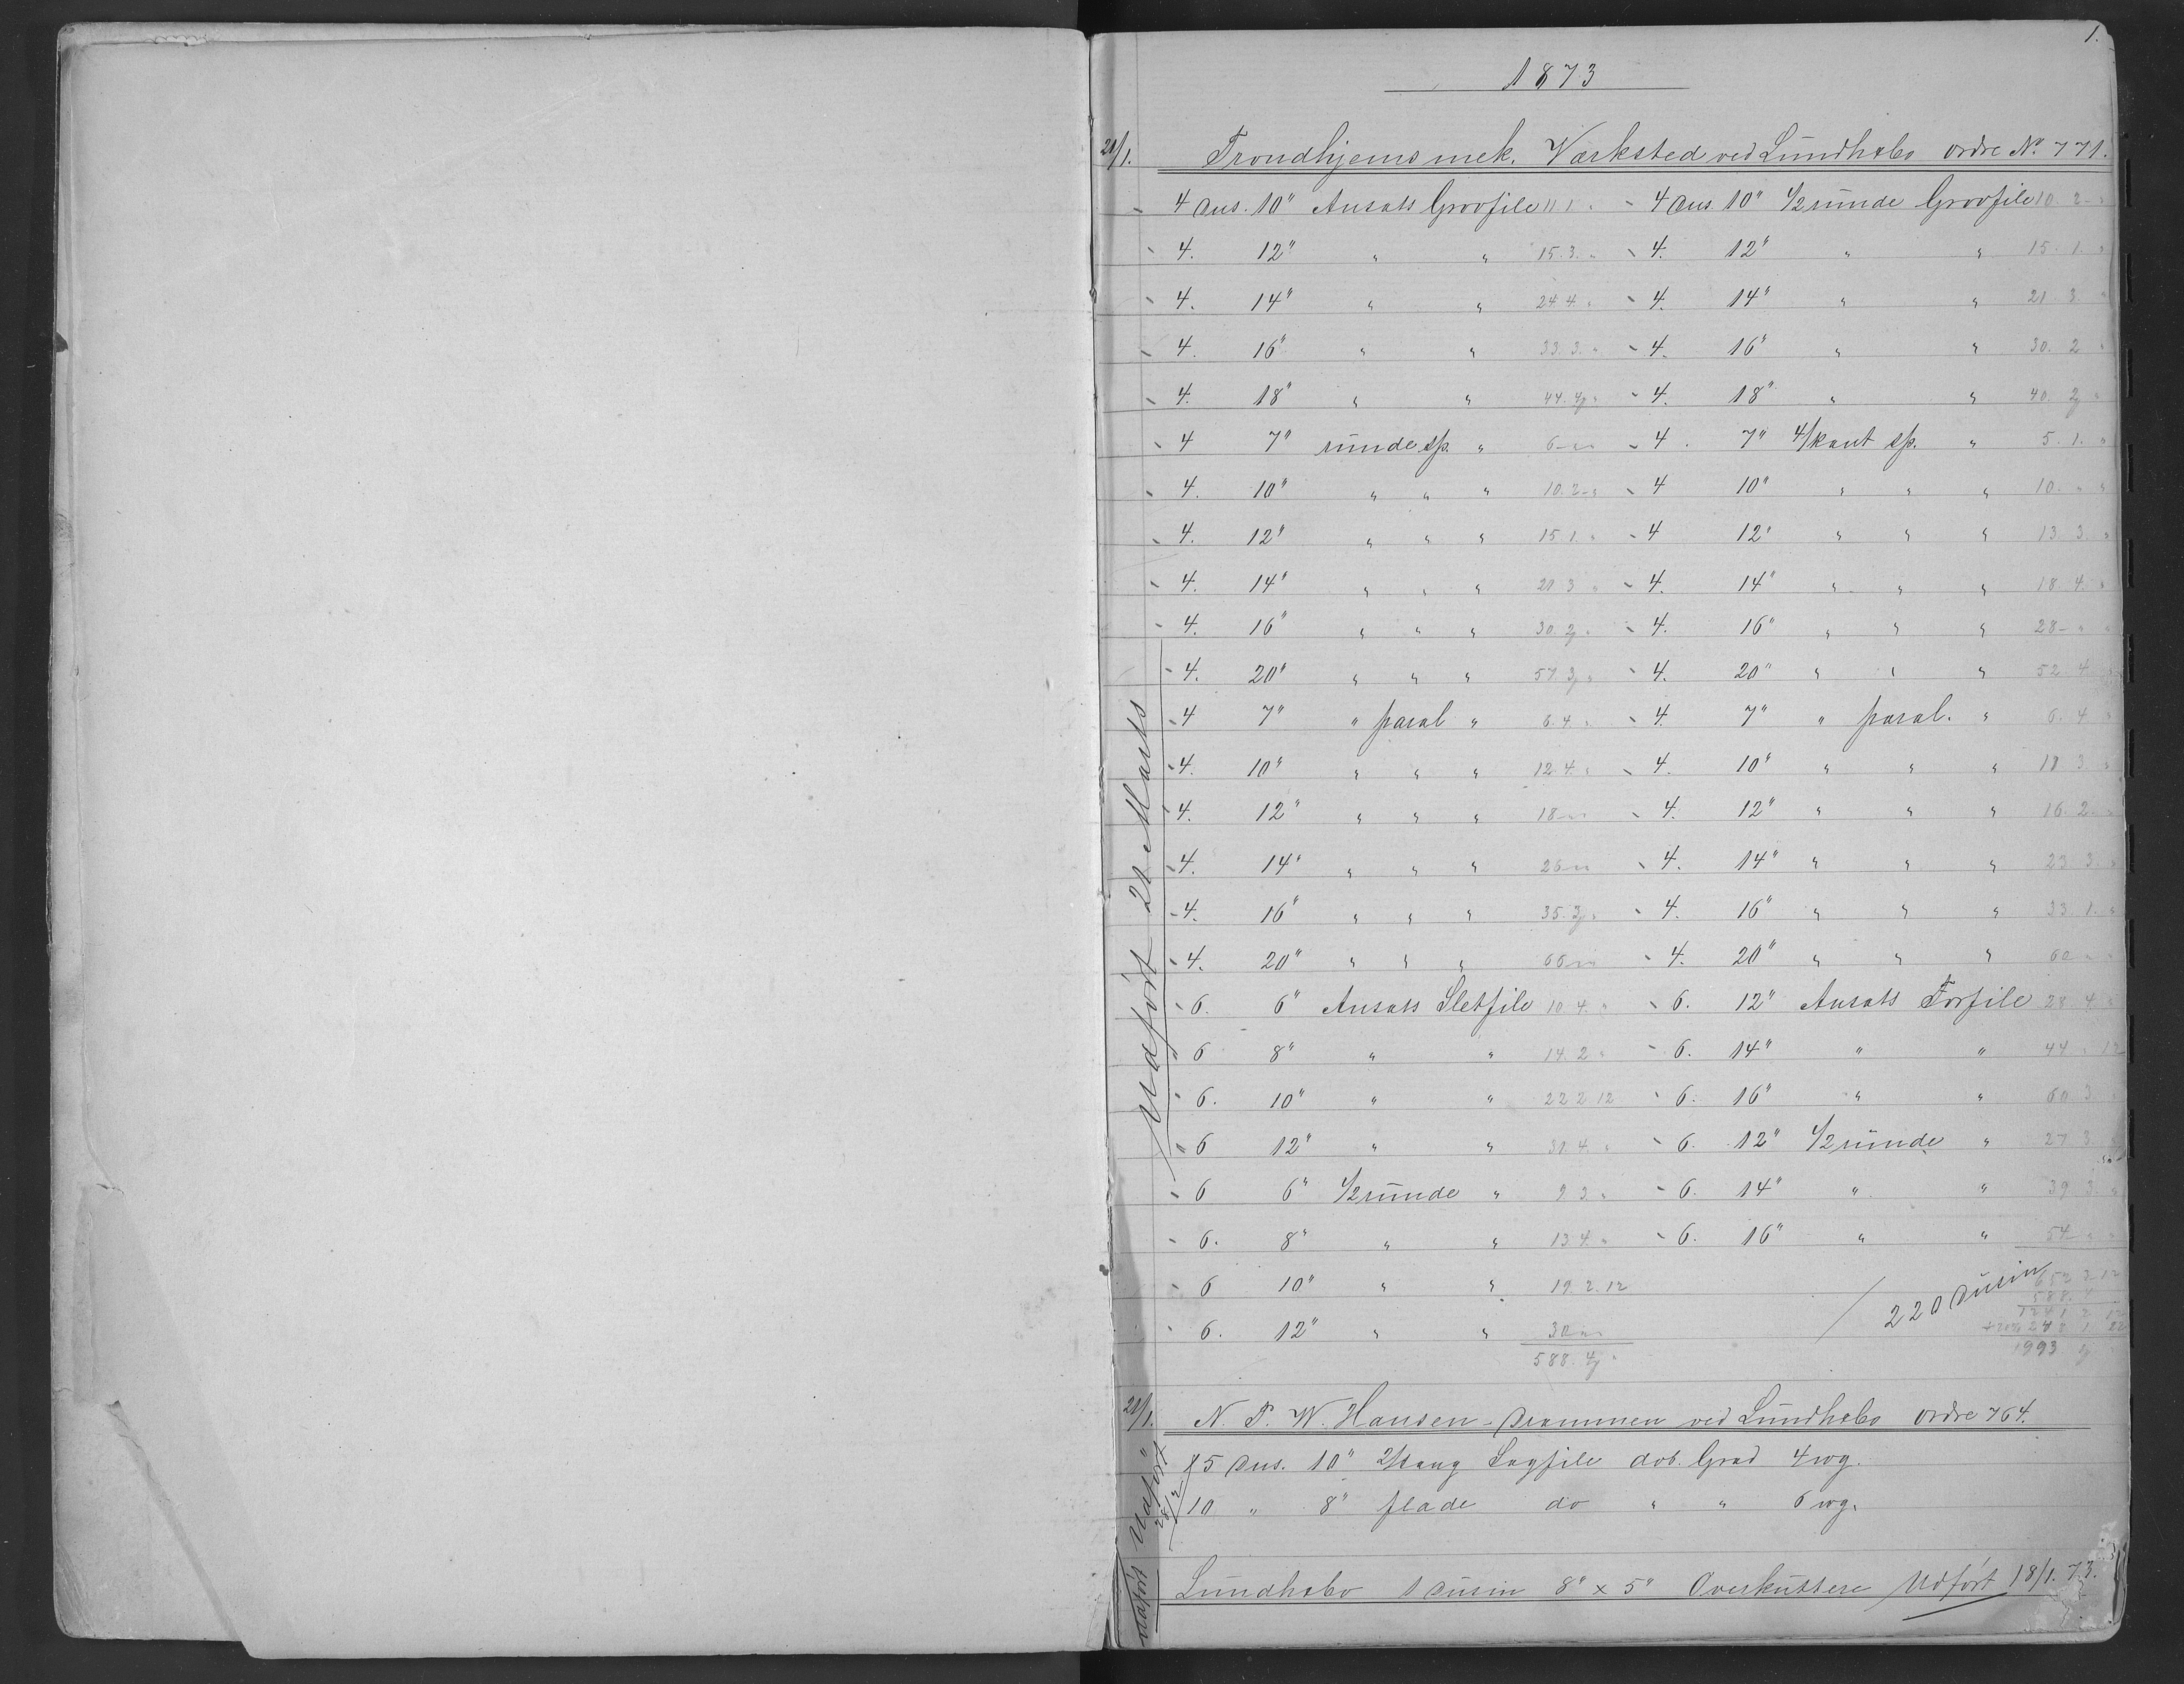 1.
1873
21/1. Trondhjems mek. Værksted ved Lundhsbo ordre No. 771.
4 Dus. 10" Ansats Grovfile 11 1 " 4 Dus. 10" 1/2 runde Grovfile 10. 2 "
4. 12" " " 15. 3. " 4. 12" " " 15. 1. "
4. 14" " " 24 4. " 4. 14" " " 21. 3. "
4. 16" " " 33. 3. " 4. 16" " " 30. 2 "
4. 18" " " 44. 4 " 4. 18" " " 40. 2 "
4 7" runde sp. " 6 " " 4. 7" 4/kant sp. " 5. 1. "
4. 10" " " " 10. 2 " 4 10" " " " 10. " "
4. 12" " " " 15 1. " 4 12" " " " 13 3. "
4. 14" " " " 21 3 " 4. 14" " " " 18. 4. "
4. 16" " " " 30. 2 " 4. 16" " " " 28 " "
4. 20" " " " 57. 3 " 4. 20" " " " 52 4 "
4 7" " paral " 6. 4 " 4. 7" " paral. " 6. 4 "
4. 10" " " " 12. 4. " 4. 10" " " " 11 3. "
4. 12" " " " 18 " " 4. 12" " " " 16. 2. "
4. 14" " " " 26 " " 4. 14" " " " 23 3. "
4. 16" " " " 35. 3 " 4. 16" " " " 33 1. "
4. 20" " " " 66 " " 4. 20" " " " 60 " "
6. 6" Ansats Sletfile 10 4. " 6. 12" Ansats Forfile 28 4. "
6 8" " " 14. 2 " 6. 14" " " 44 " 12
6. 10" " " 22 2 12 6. 16" " " 60 3 "
6 12" " " 31 4. " 6. 12" 1/2 runde " 27 3 "
6 6" 1/2 runde " 9 3. " 6. 14" " " 39 3. "
6. 8" " " 13 4. " 6. 16" " " 54 " "
6 10" " " 19. 2. 12 220 Dusin 652 3 12
588. 4
6. 12" " " 30 " " 1241 2 12
588. 4 "
1993
Udført 21 Marts
21/1. N. P. W. Hansen - Drammen ved Lundhsbo ordre 764.
15 Dus. 10" Sagfile dob. Grad 4 wg.
10 " 8" flade do " " 6 wg.
Udført
Lundhsbo 1 Dusin 8" x 5" Overkuttere Udført 18/1. 73.
Udført